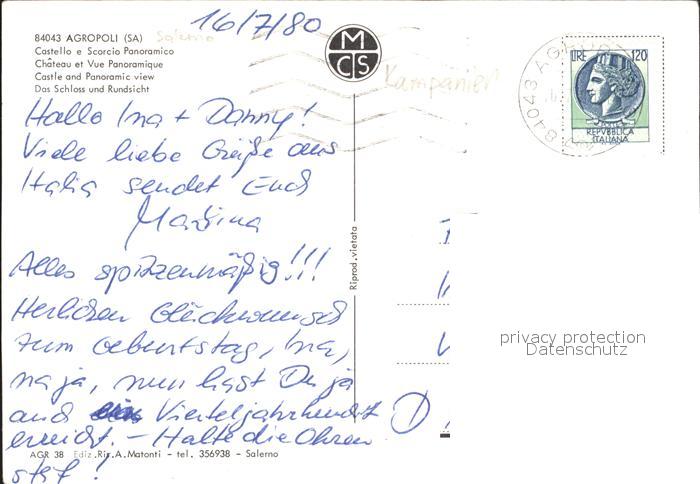 16/7/80
84043 AGROPOLI (SA) Salerno
Castello e Scorcio Panoramico
Château et Vue Panoramique
Castle and Panoramic view
Das Schloss und Rundsicht
MCS
Kampanien
84043 AG
LIRE 120
REPVBBLICA
ITALIANA
Hallo Ina + Danny!
Viele liebe Grüße aus
Italia sendet Euch
Martina
Alles spitzenmäßig!!!
Herlichen Glückwunsch
zum Geburtstag, Ina,
na ja, nun hast Du ja
auch ein Vierteljahrhundert
erreicht. – Halte die Ohren
steif!
Riprod. vietata
privacy protection
Datenschutz
AGR 38 Ediz. Rir. A. Matonti - tel. 356938 - Salerno